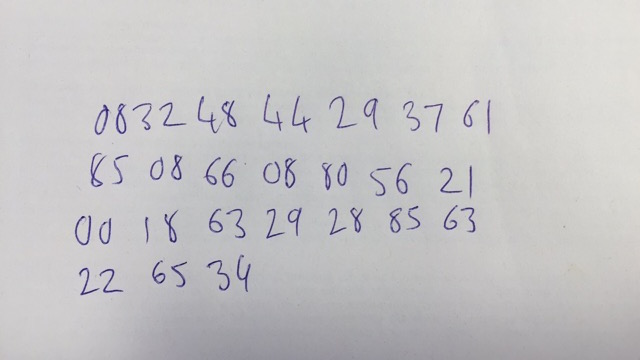 0832 48 44 29 37 61
85 08 66 08 80 56 21
00 18 63 29 28 85 63
22 65 34